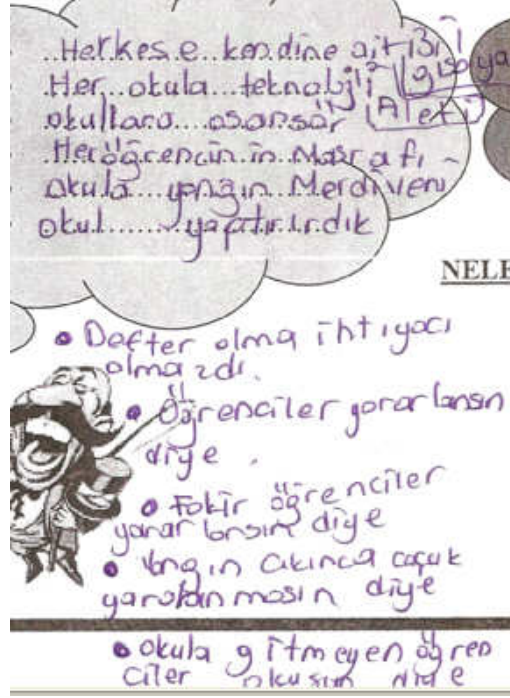 Herkese kendine ait
Her okula teknoloji
okullara asansör (Aleti)
Her öğrencinin Masrafı
okula yangın Merdiveni
okul yaptırırdık
NELE
• Defter olma ihtiyacı
olmazdı.
• Öğrenciler yararlansın
diye.
• Fakir öğrenciler
yararlansın diye
• Yangın çıkınca çoçuk
yaralanmasın diye
• okula gitmeyen öğren
ciler okusun diye